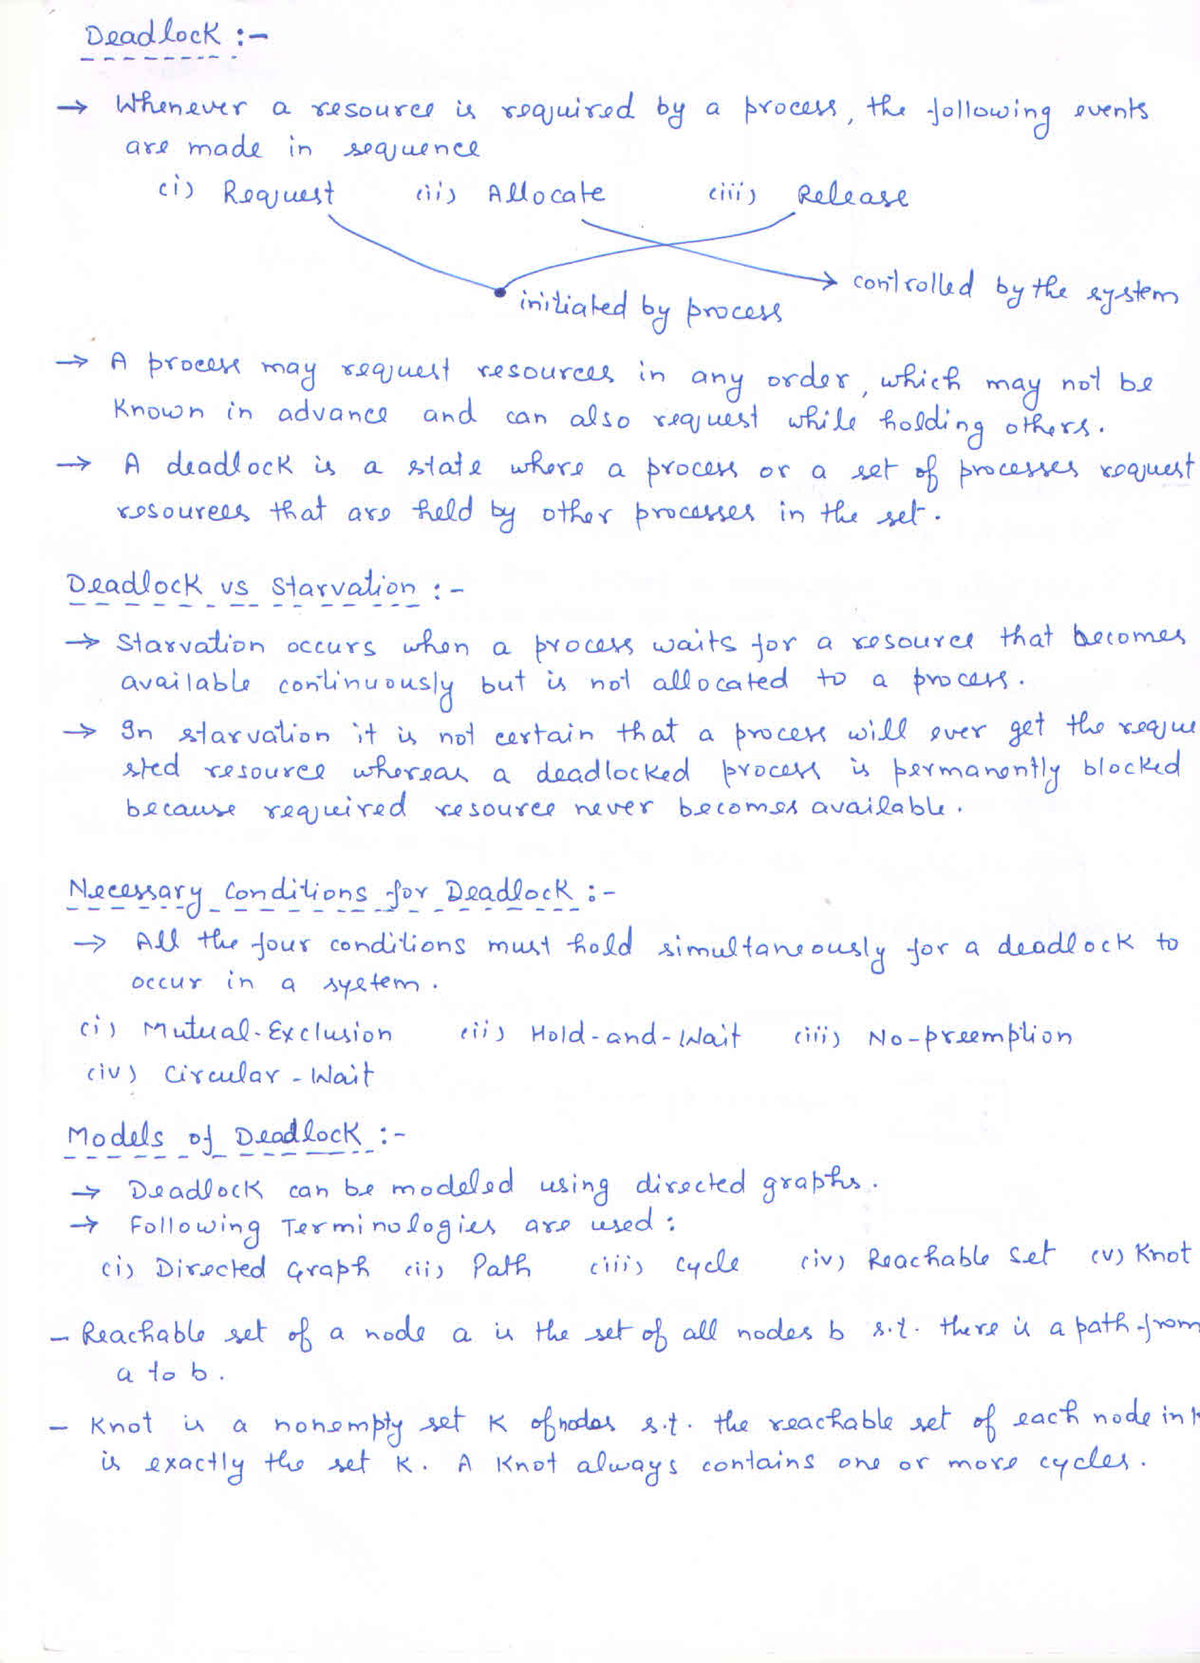 Deadlock :-
→ Whenever a resource is required by a process, the following events
are made in sequence
(i) Request (ii) Allocate (iii) Release
controlled by the system
initiated by process
→ A process may request resources in any order, which may not be
known in advance and can also request while holding others.
→ A deadlock is a state where a process or a set of processes request
resources that are held by other processes in the set.
Deadlock vs Starvation :-
→ Starvation occurs when a process waits for a resource that becomes
available continuously but is not allocated to a process.
→ In starvation it is not certain that a process will ever get the reque
sted resource whereas a deadlocked process is permanently blocked
because required resource never becomes available.
Necessary Conditions for Deadlock :-
→ All the four conditions must hold simultaneously for a deadlock to
occur in a system.
(i) Mutual-Exclusion (ii) Hold-and-Wait (iii) No-preemption
(iv) Circular-Wait
Models of Deadlock :-
→ Deadlock can be modeled using directed graphs.
→ Following Terminologies are used :
(i) Directed Graph (ii) Path (iii) Cycle (iv) Reachable Set (v) Knot
- Reachable set of a node a is the set of all nodes b s.t. there is a path from
a to b.
- Knot is a nonempty set K of nodes s.t. the reachable set of each node in K
is exactly the set K. A Knot always contains one or more cycles.